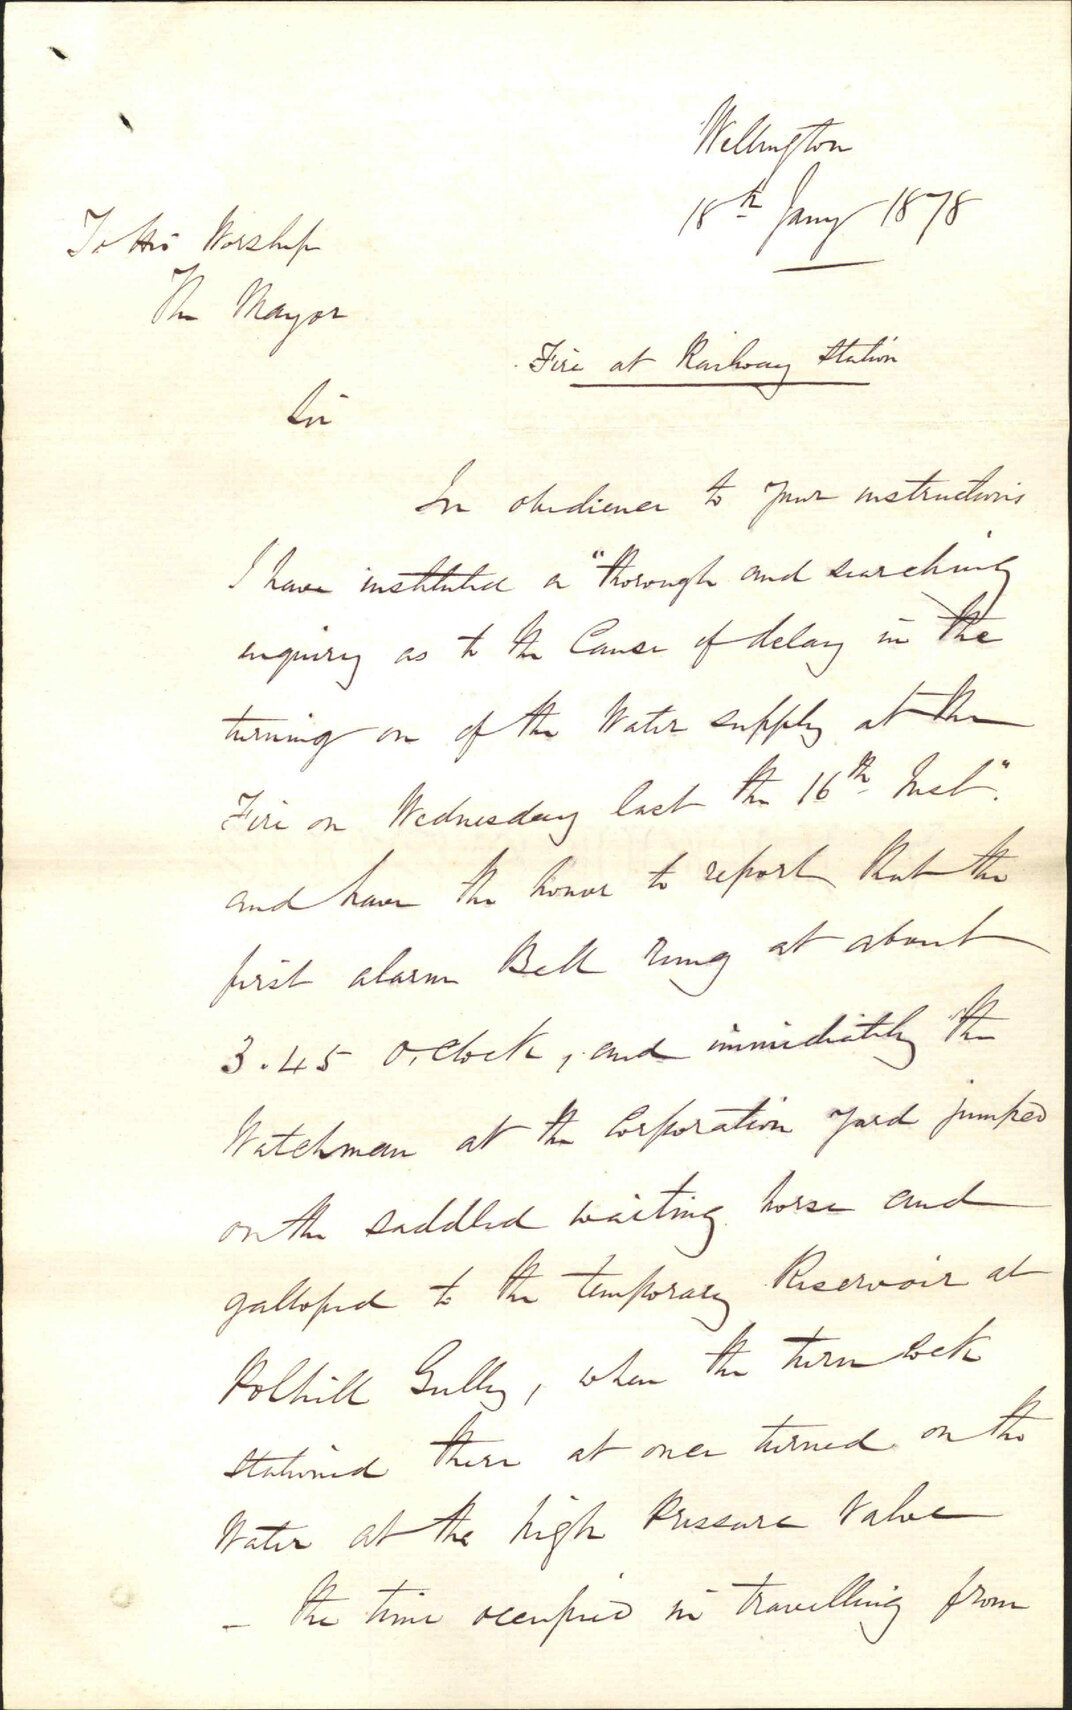 Wellington
18th Jany 1878
To His Worship
The Mayor
Fire at Railway Station
Sir
In obedience to your instructions
I have instituted a "thorough and searching
enquiry as to the Cause of delay in the
turning on of the Water supply at the
Fire on Wednesday last the 16th Inst".
and have the honor to report that the
first alarm Bell rung at about
3.45 o,clock, and immediately the
Watchman at the Corporation yard jumped
on the saddled waiting horse and
galloped to the temporary Reservoir at
Polhill Gully, when the turn cock
stationed there at once turned on the
Water at the high Pressure Valve
- the time occupied in travelling from